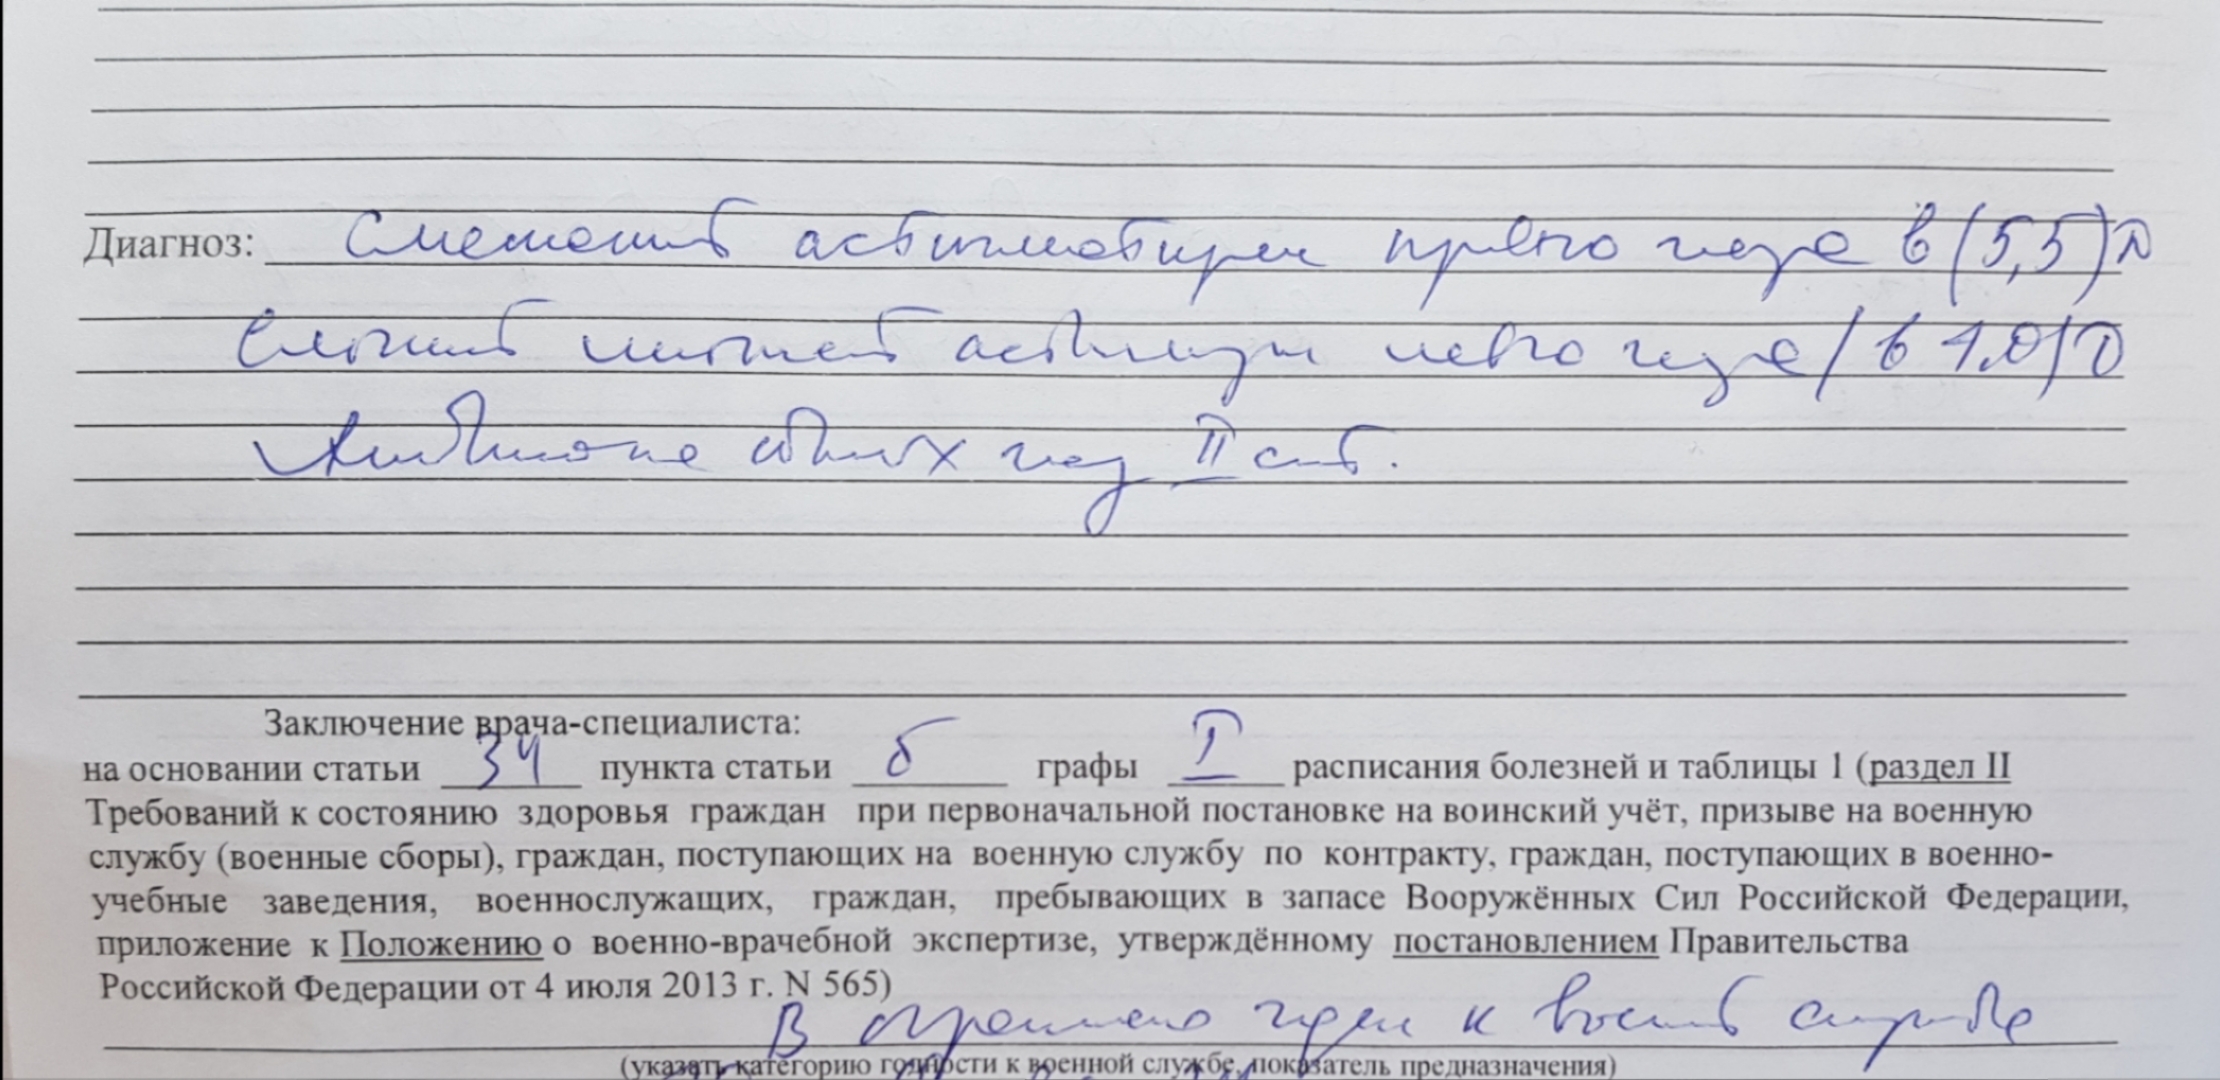 Диагноз: Смешанный астигматизм правого глаза в (5,5) D
Сложный миопический астигматизм левого глаза (в 4,0) D
Амблиопия обоих глаз II ст.
Заключение врача-специалиста:
на основании статьи 34 пункта статьи б графы I расписания болезней и таблицы 1 (раздел II
Требований к состоянию здоровья граждан при первоначальной постановке на воинский учёт, призыве на военную
службу (военные сборы), граждан, поступающих на военную службу по контракту, граждан, поступающих в военно-
учебные заведения, военнослужащих, граждан, пребывающих в запасе Вооружённых Сил Российской Федерации,
приложение к Положению о военно-врачебной экспертизе, утверждённому постановлением Правительства
Российской Федерации от 4 июля 2013 г. N 565)
В ограничено годен к военной службе
(указать категорию годности к военной службе, показатель предназначения)